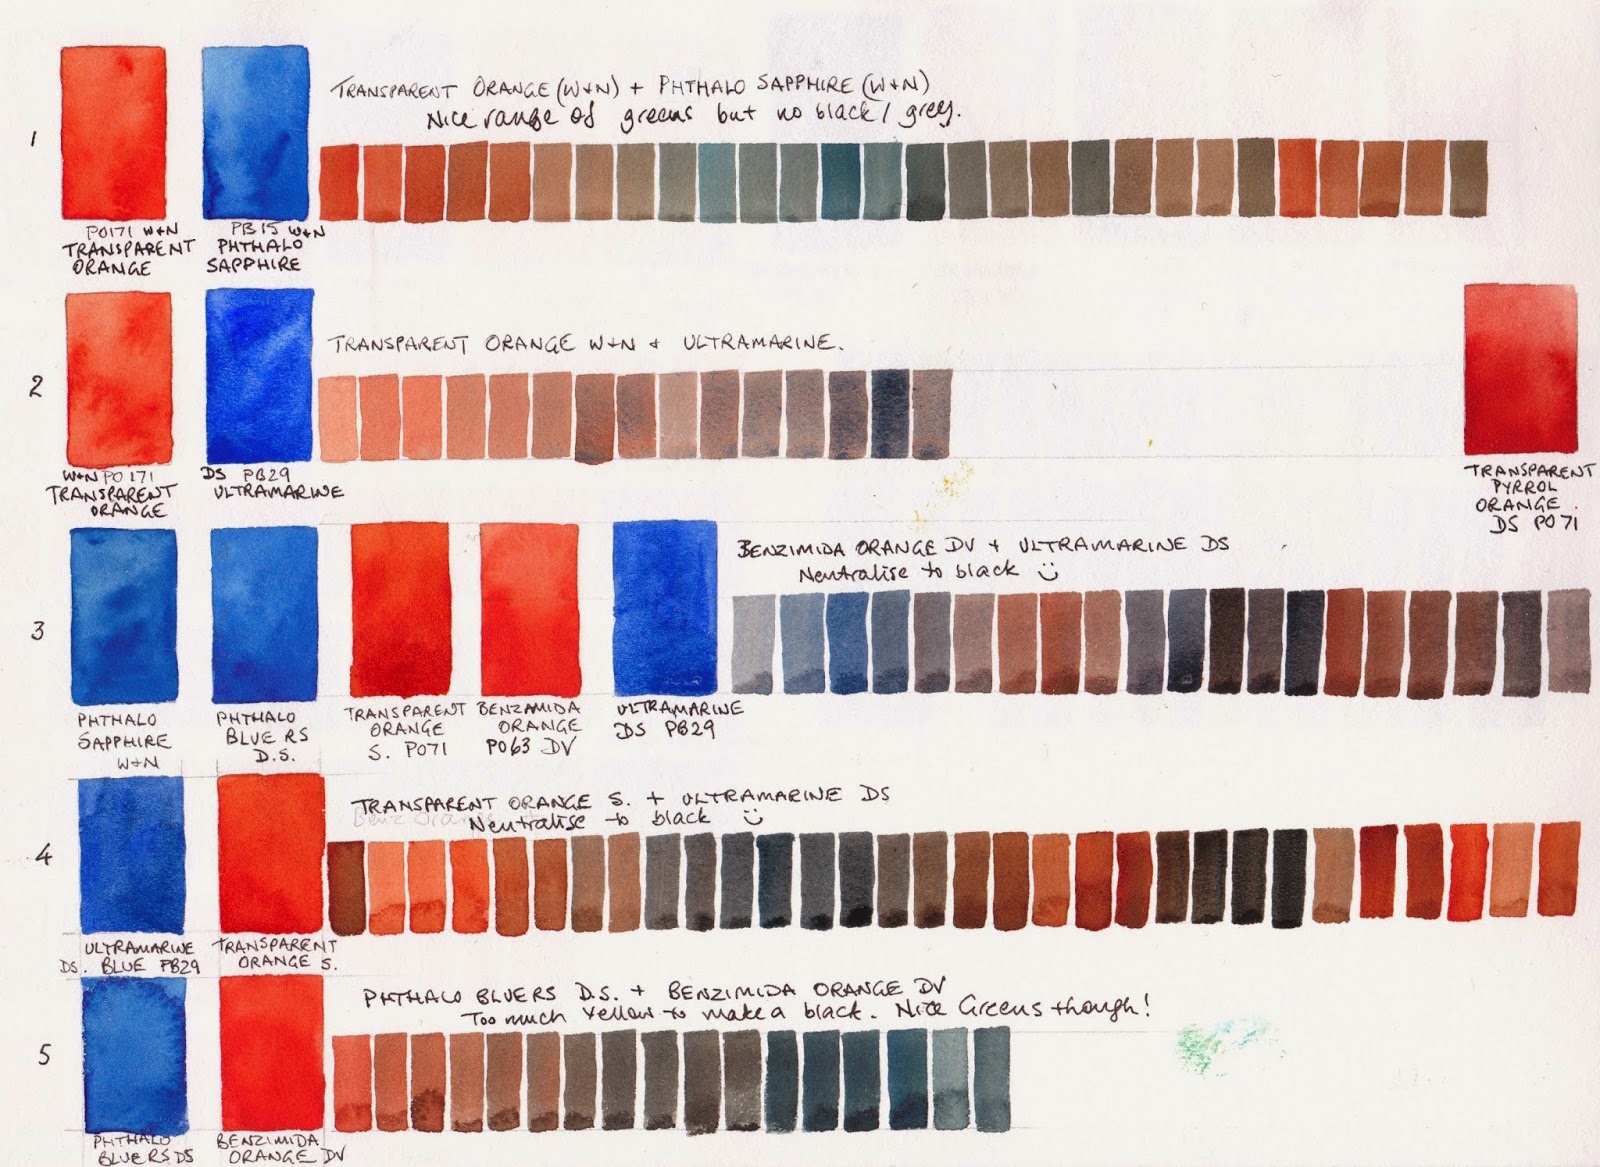 1
TRANSPARENT ORANGE (W+N) + PHTHALO SAPPHIRE (W+N)
Nice range of greens but no black / grey.
PO171 W+N
TRANSPARENT
ORANGE
PB15 W+N
PHTHALO
SAPPHIRE
2
TRANSPARENT ORANGE W+N + ULTRAMARINE.
W+N PO171
TRANSPARENT
ORANGE
DS PB29
ULTRAMARINE
TRANSPARENT
PYRROL
ORANGE.
DS PO71
3
BENZIMIDA ORANGE DV + ULTRAMARINE DS
Neutralise to black
PHTHALO
SAPPHIRE
W+N
PHTHALO
BLUE RS
D.S.
TRANSPARENT
ORANGE
S. PO71
BENZAMIDA
ORANGE
PO63 DV
ULTRAMARINE
DS PB29
4
TRANSPARENT ORANGE S. + ULTRAMARINE DS
Neutralise to black
ULTRAMARINE
DS. BLUE PB29
TRANSPARENT
ORANGE S.
5
PHTHALO BLUE RS D.S. + BENZIMIDA ORANGE DV
Too much Yellow to make a black. Nice Greens though!
PHTHALO
BLUE RS DS
BENZIMIDA
ORANGE DV